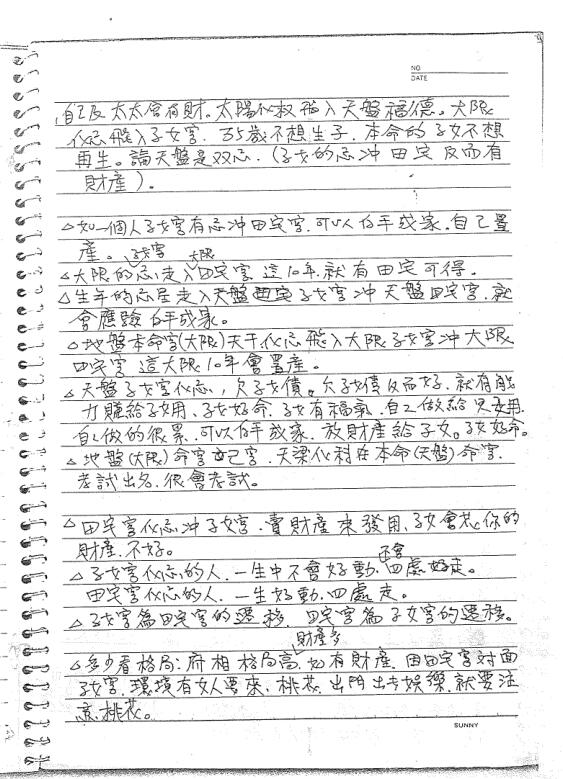 NO
DATE
自己及太太會有財。太陽化权飛入天盤福德。大限
化忌飛入子女宮、35歲不想生子、本命的子女不想
再生。論天盤是双忌、(子女的忌冲田宅反而有
財產)。
△如一個人子女宮有忌冲田宅宮、可以白手成家、自己置
產。
子女宮 大限
△大限的忌、走入田宅宮、這10年、就有田宅可得。
△生年的忌星走入天盤子女宮冲天盤田宅宮、就
會應驗白手成家。
△地盤本命宮(大限)天干化忌飛入大限子女宮冲大限
田宅宮這大限10年會置產。
△天盤子女宮化忌,欠子女債。欠子女債反而好、就有能
力賺給子女用、子女好命、子女有福氣、自己做給兒女用、
自己做的很累、可以白手成家、放財產給子女。子女好命。
△地盤(大限)命宮 宮、天梁化科在本命(天盤)命宮、
考試出名、很會考試。
△田宅宮化忌冲子女宮、賣財產來發用、子女會花你的
財產、不好。
還會
△子女宮化忌的人、一生中不會好動、四處好走。
田宅宮化忌的人、一生好動、四處走。
△子女宮為田宅宮的遷移、田宅宮為子女宮的遷移。
財產多
△多少看格局:府相格局高、如有財產、由田宅宮对面
子女宮、環境有女人要來、桃花、出門出去娛樂、就要注
意桃花。
SUNNY